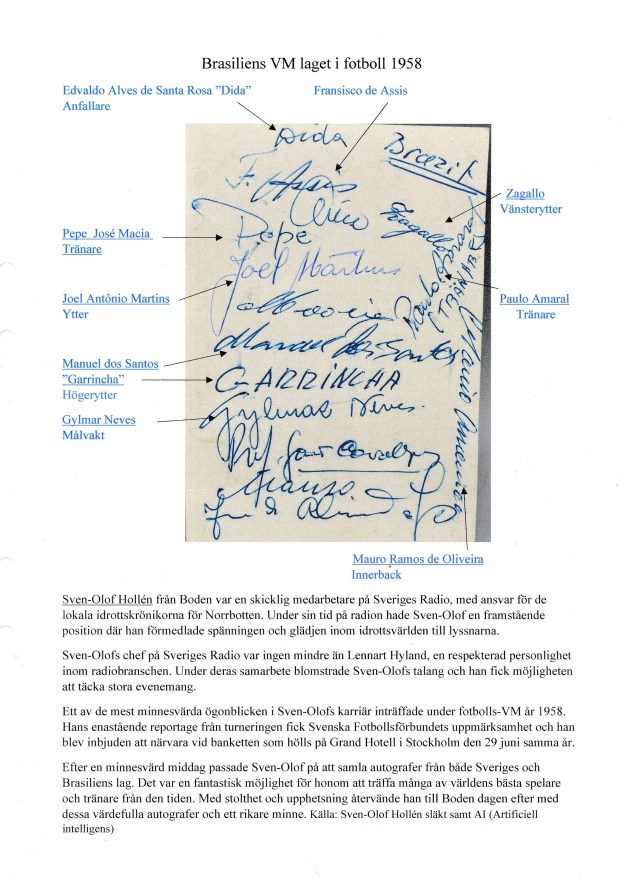 Brasiliens VM laget i fotboll 1958
Edvaldo Alves de Santa Rosa ”Dida”
Anfallare
Fransisco de Assis
Dida
Brazil
F. Assis
Chico
Zagallo
Zagallo
Vänsterytter
Pepe José Macia
Tränare
Pepe
Joel Martins
Joel Antônio Martins
Ytter
Paulo Amaral
(TRAINER)
Paulo Amaral
Tränare
Manuel dos Santos
”Garrincha”
Högerytter
Manuel dos Santos
GARRINCHA
Gylmar Neves
Målvakt
Gylmar Neves.
Mauro Ramos de Oliveira
Innerback
Sven-Olof Hollén från Boden var en skicklig medarbetare på Sveriges Radio, med ansvar för de
lokala idrottskrönikorna för Norrbotten. Under sin tid på radion hade Sven-Olof en framstående
position där han förmedlade spänningen och glädjen inom idrottsvärlden till lyssnarna.
Sven-Olofs chef på Sveriges Radio var ingen mindre än Lennart Hyland, en respekterad personlighet
inom radiobranschen. Under deras samarbete blomstrade Sven-Olofs talang och han fick möjligheten
att täcka stora evenemang.
Ett av de mest minnesvärda ögonblicken i Sven-Olofs karriär inträffade under fotbolls-VM år 1958.
Hans enastående reportage från turneringen fick Svenska Fotbollsförbundets uppmärksamhet och han
blev inbjuden att närvara vid banketten som hölls på Grand Hotell i Stockholm den 29 juni samma år.
Efter en minnesvärd middag passade Sven-Olof på att samla autografer från både Sveriges och
Brasiliens lag. Det var en fantastisk möjlighet för honom att träffa många av världens bästa spelare
och tränare från den tiden. Med stolthet och upphetsning återvände han till Boden dagen efter med
dessa värdefulla autografer och ett rikare minne. Källa: Sven-Olof Hollén släkt samt AI (Artificiell
intelligens)